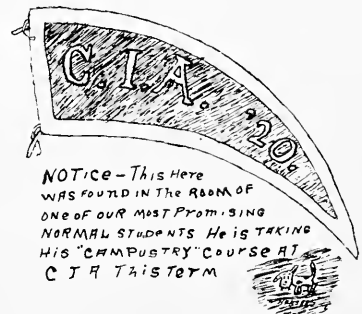 C.I.A. '20.
NOTICE - THIS HERE
WAS FOUND IN THE ROOM OF
ONE OF OUR MOST PROMISING
NORMAL STUDENTS HE IS TAKING
HIS "CAMPUSTRY" COURSE AT
C I A THIS TERM